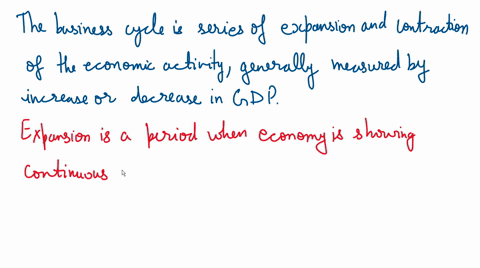 The business cycle is series of expansion and contraction
of the economic activity, generally measured by
increase or decrease in GDP.
Expansion is a period when economy is showing
continuous